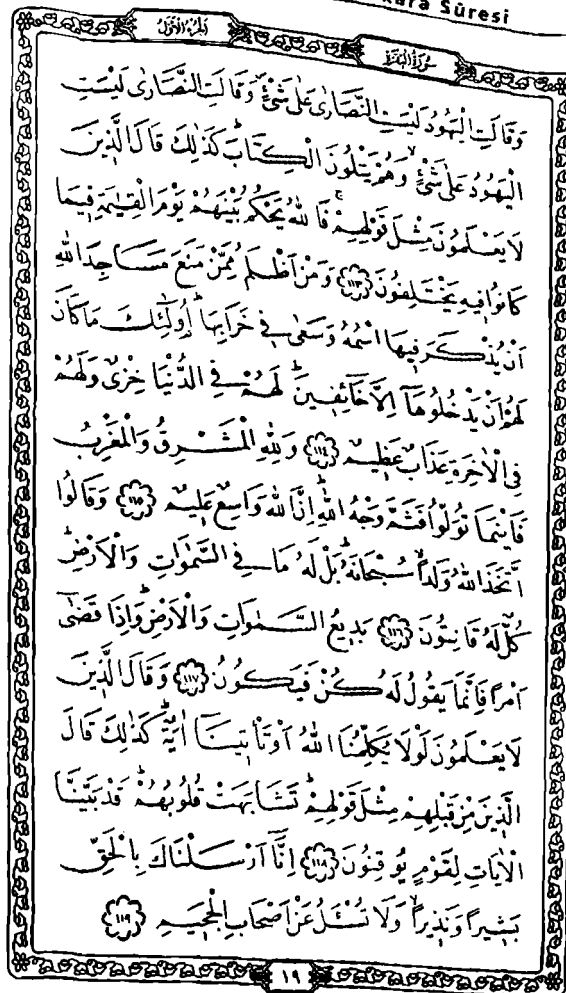 kara Sûresi
اَلْجُزْءُ الْاَوَّلُ
سُورَةُ الْبَقَرَةِ
وَقَالَتِ الْيَهُودُ لَيْسَتِ النَّصَارٰى عَلٰى شَيْءٍۖ وَقَالَتِ النَّصَارٰى لَيْسَتِ
الْيَهُودُ عَلٰى شَيْءٍۙ وَهُمْ يَتْلُونَ الْكِتَابَۜ كَذٰلِكَ قَالَ الَّذ۪ينَ
لَا يَعْلَمُونَ مِثْلَ قَوْلِهِمْۚ فَاللّٰهُ يَحْكُمُ بَيْنَهُمْ يَوْمَ الْقِيٰمَةِ ف۪يمَا
كَانُوا ف۪يهِ يَخْتَلِفُونَ ﴿١١٣﴾ وَمَنْ اَظْلَمُ مِمَّنْ مَنَعَ مَسَاجِدَ اللّٰهِ
اَنْ يُذْكَرَ ف۪يهَا اسْمُهُ وَسَعٰى ف۪ي خَرَابِهَاۜ اُو۬لٰٓئِكَ مَا كَانَ
لَهُمْ اَنْ يَدْخُلُوهَٓا اِلَّا خَٓائِف۪ينَۜ لَهُمْ فِي الدُّنْيَا خِزْيٌ وَلَهُمْ
فِي الْاٰخِرَةِ عَذَابٌ عَظ۪يمٌ ﴿١١٤﴾ وَلِلّٰهِ الْمَشْرِقُ وَالْمَغْرِبُ
فَاَيْنَمَا تُوَلُّوا فَثَمَّ وَجْهُ اللّٰهِۜ اِنَّ اللّٰهَ وَاسِعٌ عَل۪يمٌ ﴿١١٥﴾ وَقَالُوا
اتَّخَذَ اللّٰهُ وَلَدًاۙ سُبْحَانَهُۜ بَلْ لَهُ مَا فِي السَّمٰوَاتِ وَالْاَرْضِۜ
كُلٌّ لَهُ قَانِتُونَ ﴿١١٦﴾ بَد۪يعُ السَّمٰوَاتِ وَالْاَرْضِۜ وَاِذَا قَضٰٓى
اَمْرًا فَاِنَّمَا يَقُولُ لَهُ كُنْ فَيَكُونُ ﴿١١٧﴾ وَقَالَ الَّذ۪ينَ
لَا يَعْلَمُونَ لَوْلَا يُكَلِّمُنَا اللّٰهُ اَوْ تَأْت۪ينَٓا اٰيَةٌۜ كَذٰلِكَ قَالَ
الَّذ۪ينَ مِنْ قَبْلِهِمْ مِثْلَ قَوْلِهِمْۜ تَشَابَهَتْ قُلُوبُهُمْۜ قَدْ بَيَّنَّا
الْاٰيَاتِ لِقَوْمٍ يُوقِنُونَ ﴿١١٨﴾ اِنَّٓا اَرْسَلْنَاكَ بِالْحَقِّ
بَش۪يرًا وَنَذ۪يرًاۙ وَلَا تُسْـَٔلُ عَنْ اَصْحَابِ الْجَح۪يمِ ﴿١١٩﴾
١٩